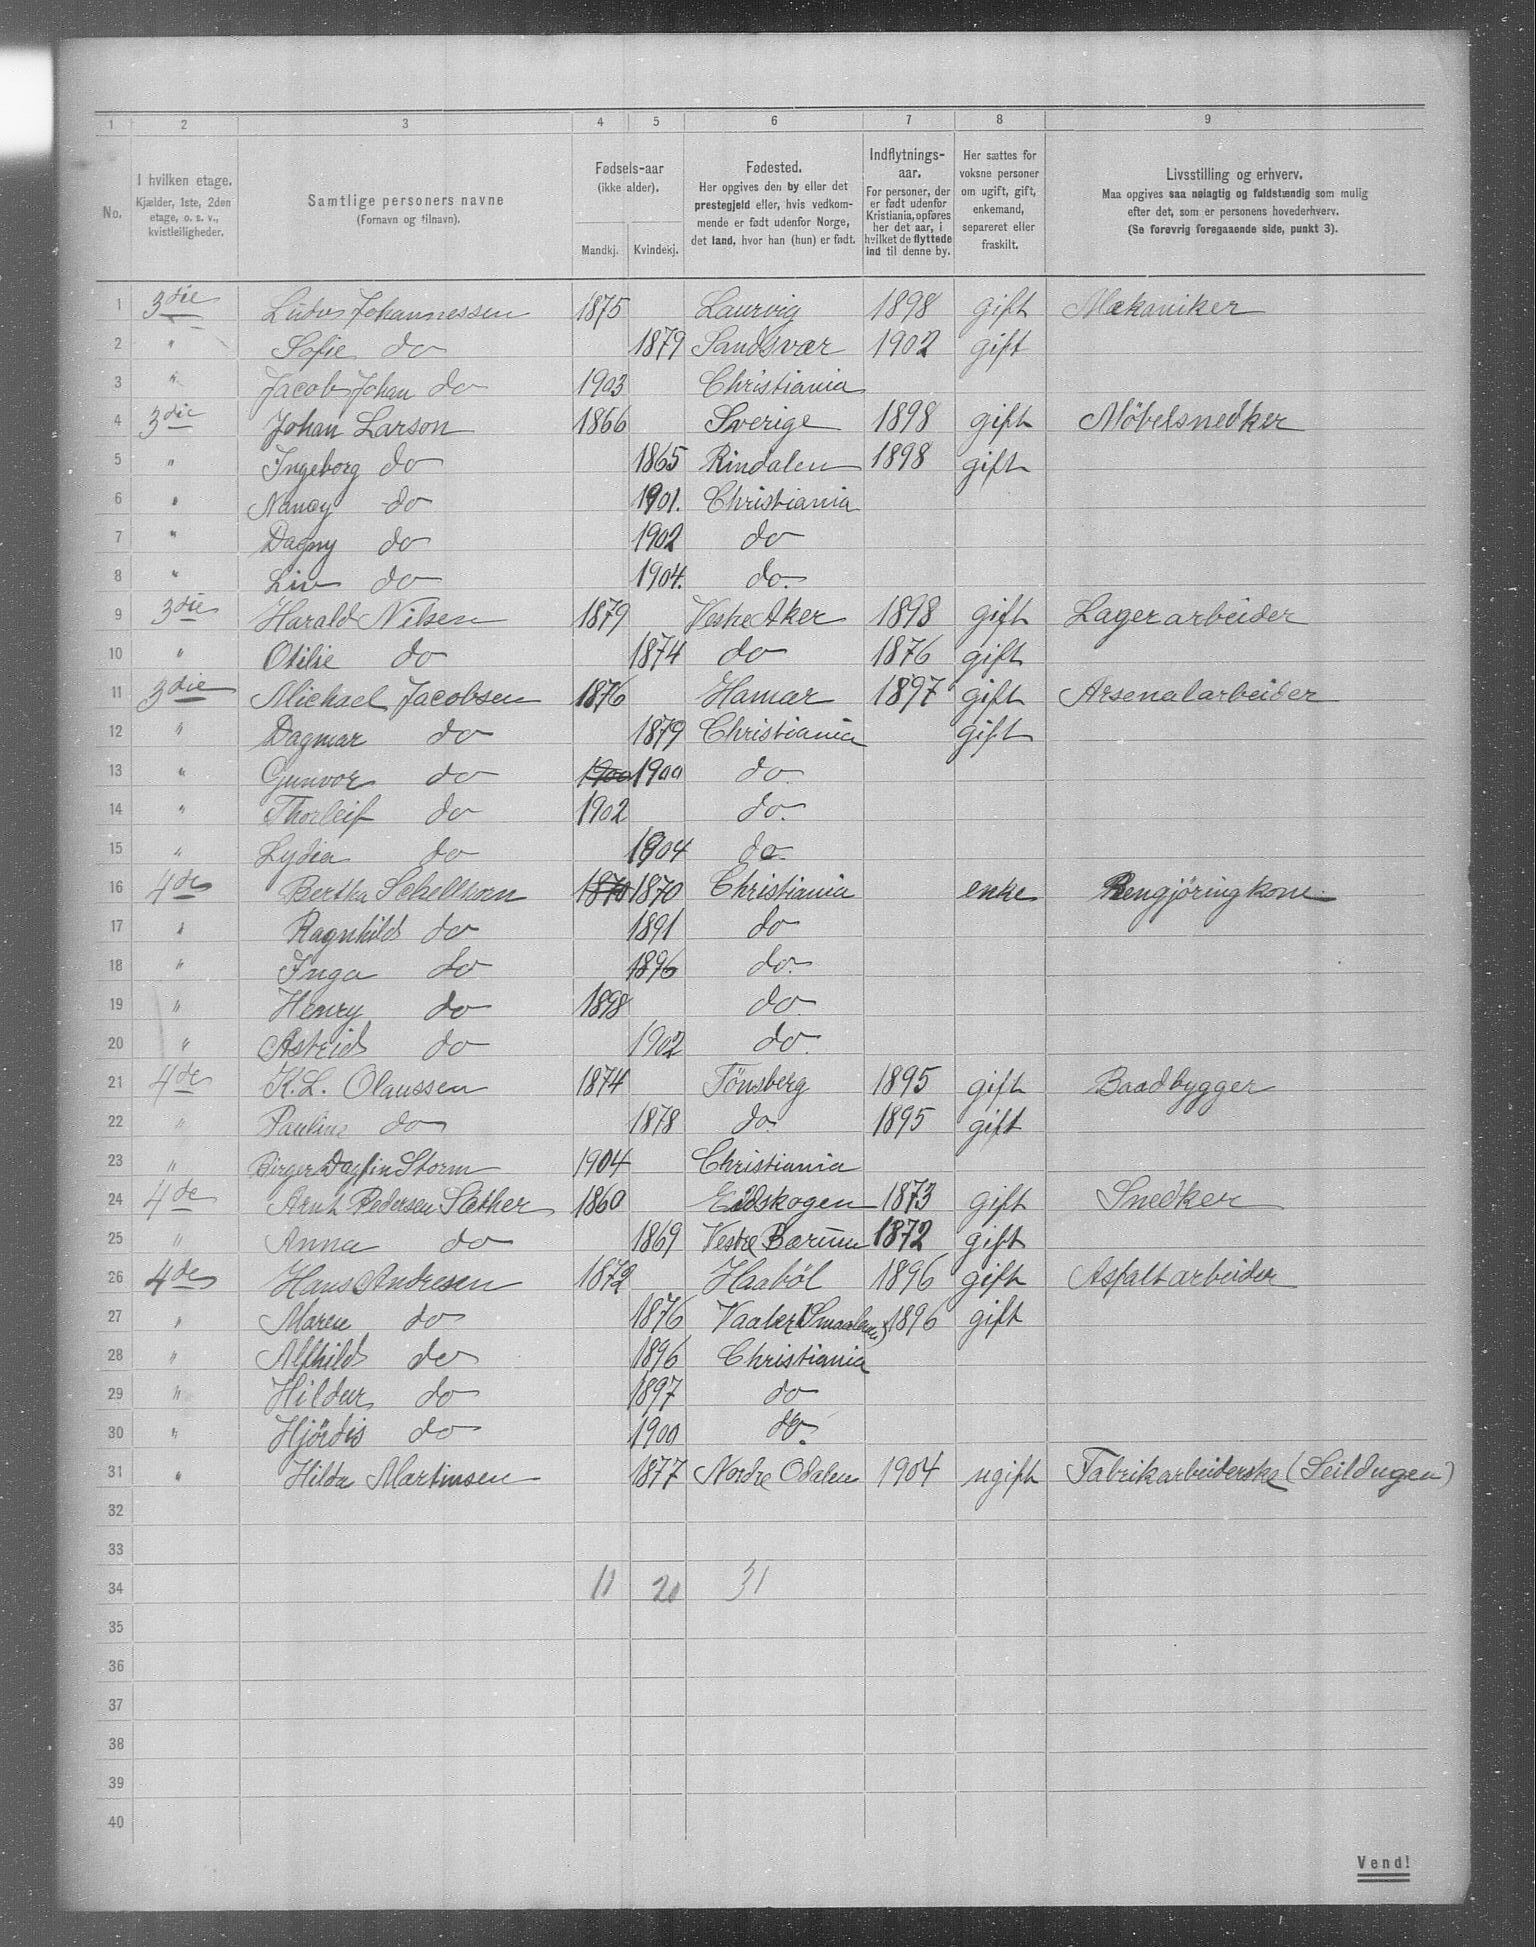 1 2 3 4 5 6 7 8 9
No. I hvilken etage. Kjælder, 1ste, 2den etage, o. s. v., kvistleiligheder. Samtlige personers navne (Fornavn og tilnavn). Fødsels-aar (ikke alder). Mandkj. Kvindekj. Fødested. Her opgives den by eller det prestegjeld eller, hvis vedkommende er født udenfor Norge, det land, hvor han (hun) er født. Indflytnings-aar. For personer, der er født udenfor Kristiania, opføres her det aar, i hvilket de flyttede ind til denne by. Her sættes for voksne personer om ugift, gift, enkemand, separeret eller fraskilt. Livsstilling og erhverv. Maa opgives saa nøiagtig og fuldstændig som mulig efter det, som er personens hovederhverv. (Se forøvrig foregaaende side, punkt 3).
1 3die Johannessen 1875 Laurvig 1898 gift Mekaniker
2 " Sofie do 1879 Sandsvær 1902 gift
3 " Jacob Johan do 1903 Christiania
4 3die Johan Larson 1866 Sverige 1898 gift Möbelsnedker
5 " Ingeborg do 1865 Rindalen 1898 gift
6 " Nancy do 1901. Christiania
7 " Dagny do 1902 do
8 " Liv do 1904. do.
9 3die Harald Nilsen 1879 Vestre Aker 1898 gift Lagerarbeider
10 " Otilie do 1874 do 1876 gift
11 3die Michael Jacobsen 1876 Hamar 1897 gift Arsenalarbeider
12 " Dagmar do 1879 Christiania gift
13 " Gunvor do 1900 1900 do
14 " Thorleif do 1902 do.
15 " Lydia do 1904 do.
16 4de Bertha Schellhorn 1870 1870 Christiania enke Rengjöringkone
17 " Ragnhild do 1891 do
18 " Inga do 1896 do.
19 " Henry do 1898 do
20 " Astrid do 1902 do.
21 4de K. L. Olaussen 1874 Tönsberg 1895 gift Baadbygger
22 " Pauline do 1878 do 1895 gift
23 " Birger Dagfin Storm 1904 Christiania
24 4de Arnt Pedersen Sæther 1860 Eidskogen 1873 gift Snedker
25 " Anna do 1869 Vestre Bærum 1872 gift
26 4de Hans Andresen 1872 Haaböl 1896 gift Asfaltarbeider
27 " Maren do 1876 Vaaler (Smaalene) 1896 gift
28 " Alfhild do 1896 Christiania
29 " Hildur do 1897 do
30 " Hjördis do 1900 do.
31 " Hilda Martinsen 1877 Nordre Odalen 1904 ugift Fabrikarbeiderske (Seildugen)
32
33
34 11 20 31
35
36
37
38
39
40
Vend!